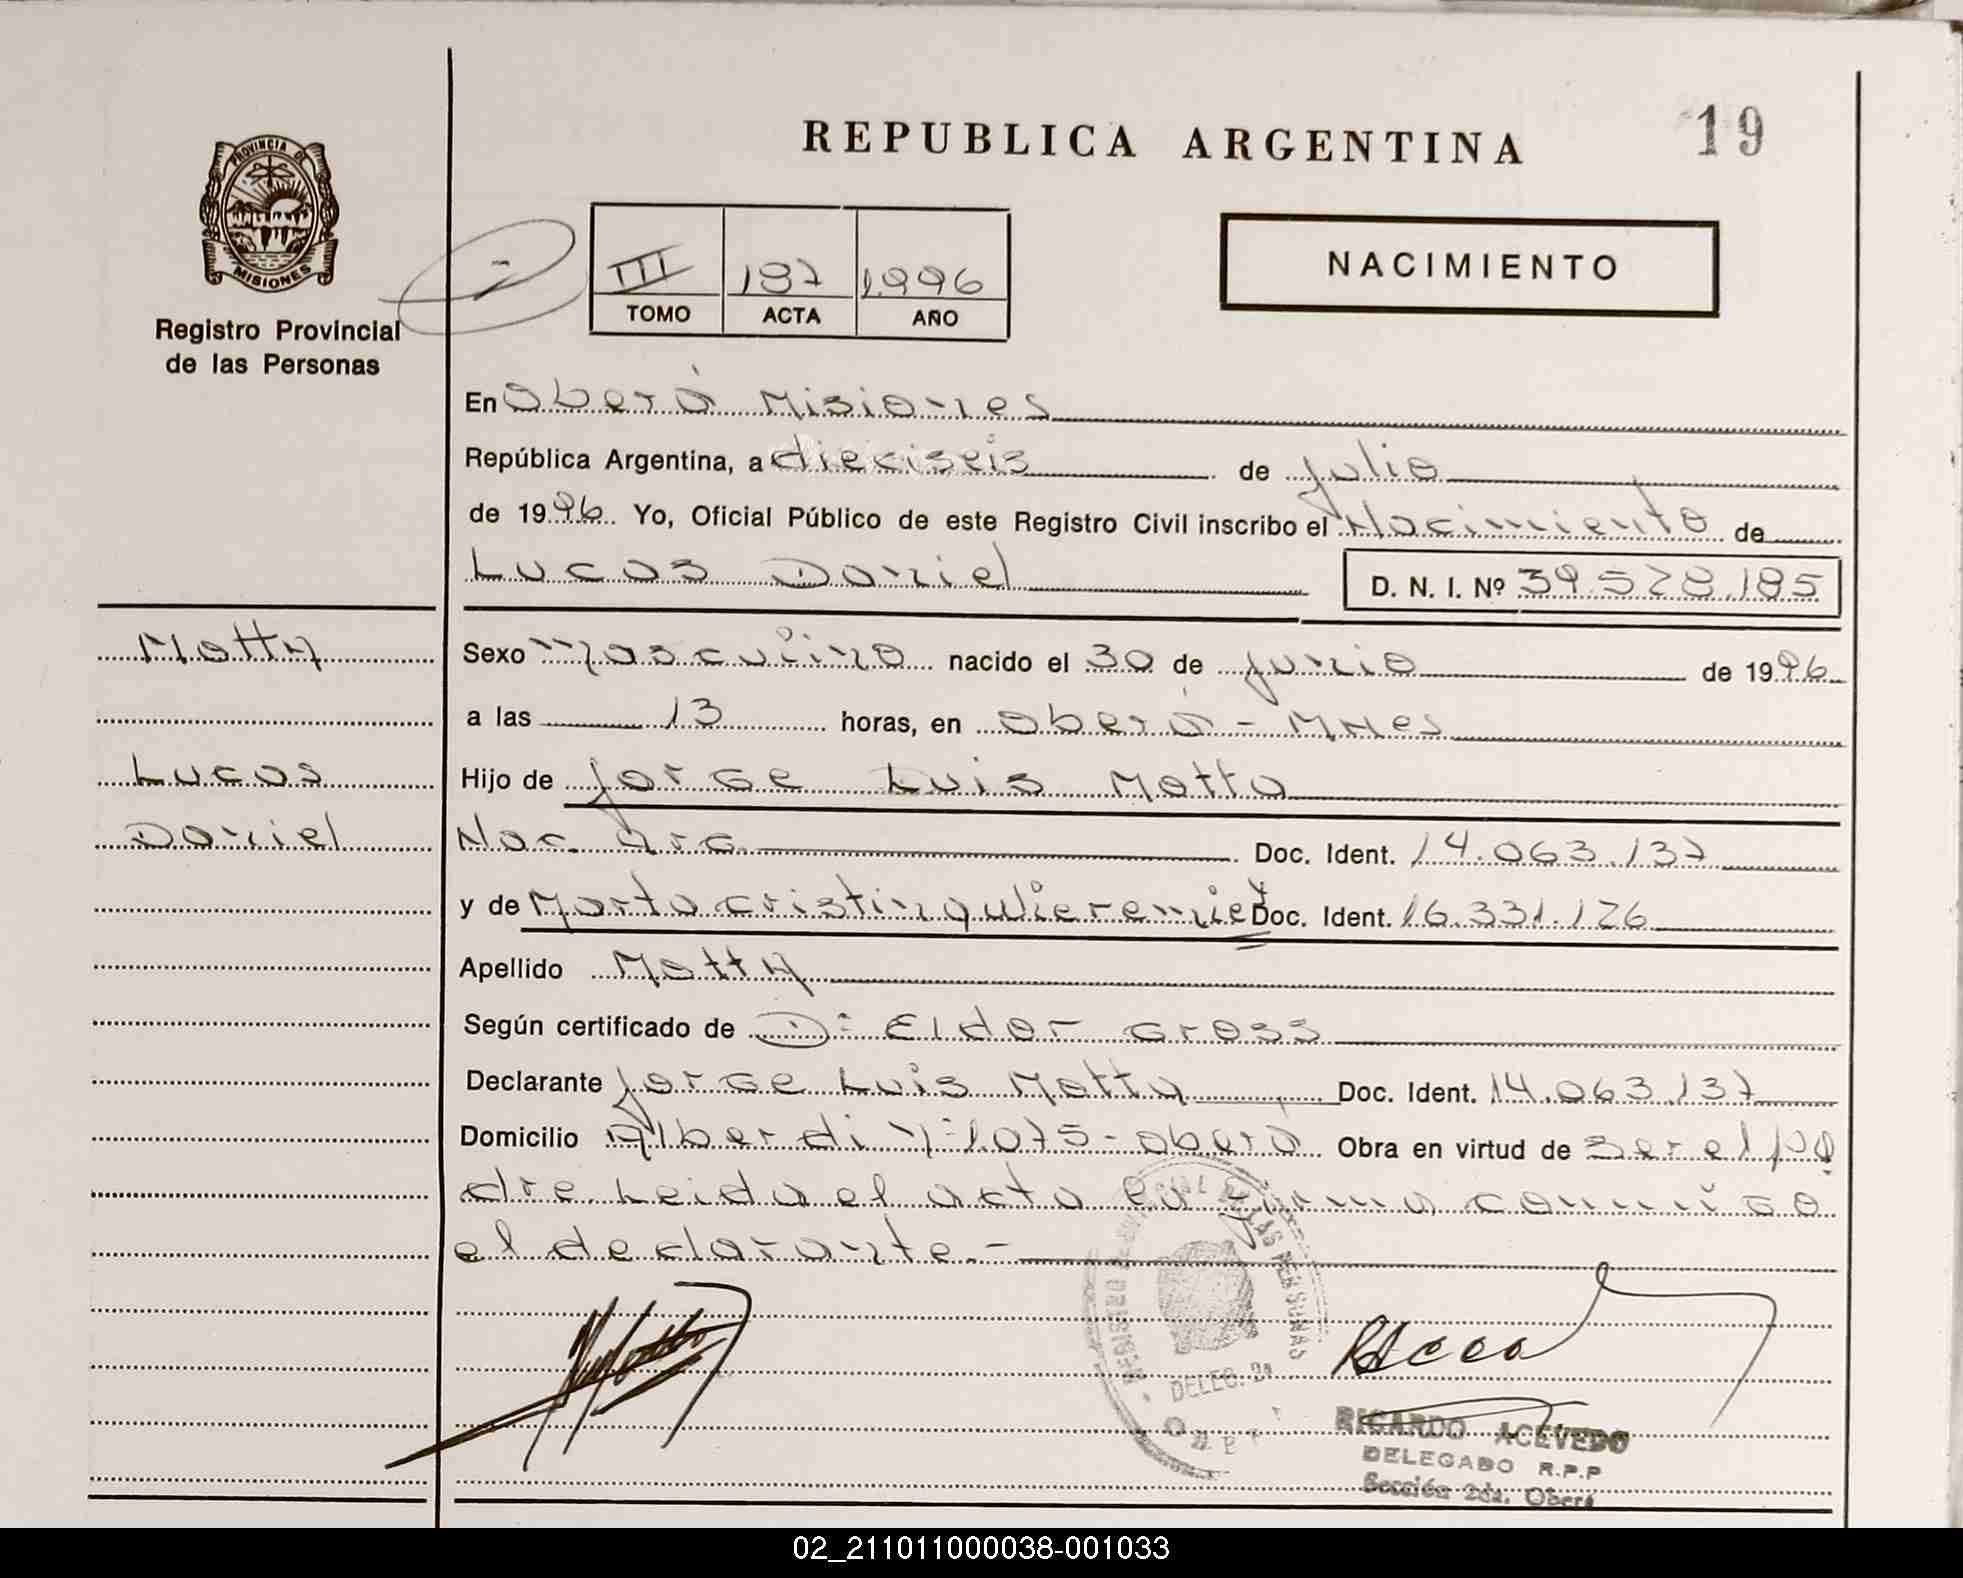 REPUBLICA ARGENTINA
19
PROVINCIA DE
MISIONES
Registro Provincial
de las Personas
III 197 1.996
TOMO ACTA AÑO
NACIMIENTO
En Oberá Misiones
República Argentina, a dieciseis de julio
de 1996. Yo, Oficial Público de este Registro Civil inscribo el Nacimiento de
Lucas Daniel D. N. I. Nº 39.528.185
Motta
Lucas
Daniel
Sexo Masculino nacido el 30 de junio de 1996
a las 13 horas, en Oberá - Mnes
Hijo de Jorge Luis Motta
Nac. Arg. Doc. Ident. 14.063.137
y de Marta Cristina Doc. Ident. 16.331.126
Apellido Motta
Según certificado de Dr Eldor Gross
Declarante Jorge Luis Motta Doc. Ident. 14.063.137
Domicilio Alberdi Nº 1.075 - Oberá Obra en virtud de ser el pa
dre Leida el acta la firma conmigo
el declarante.-
REGISTRO DE LAS PERSONAS
DELEG. 2a
RICARDO ACEVEDO
DELEGADO R.P.P
Sección 2da. Oberá
02_211011000038-001033